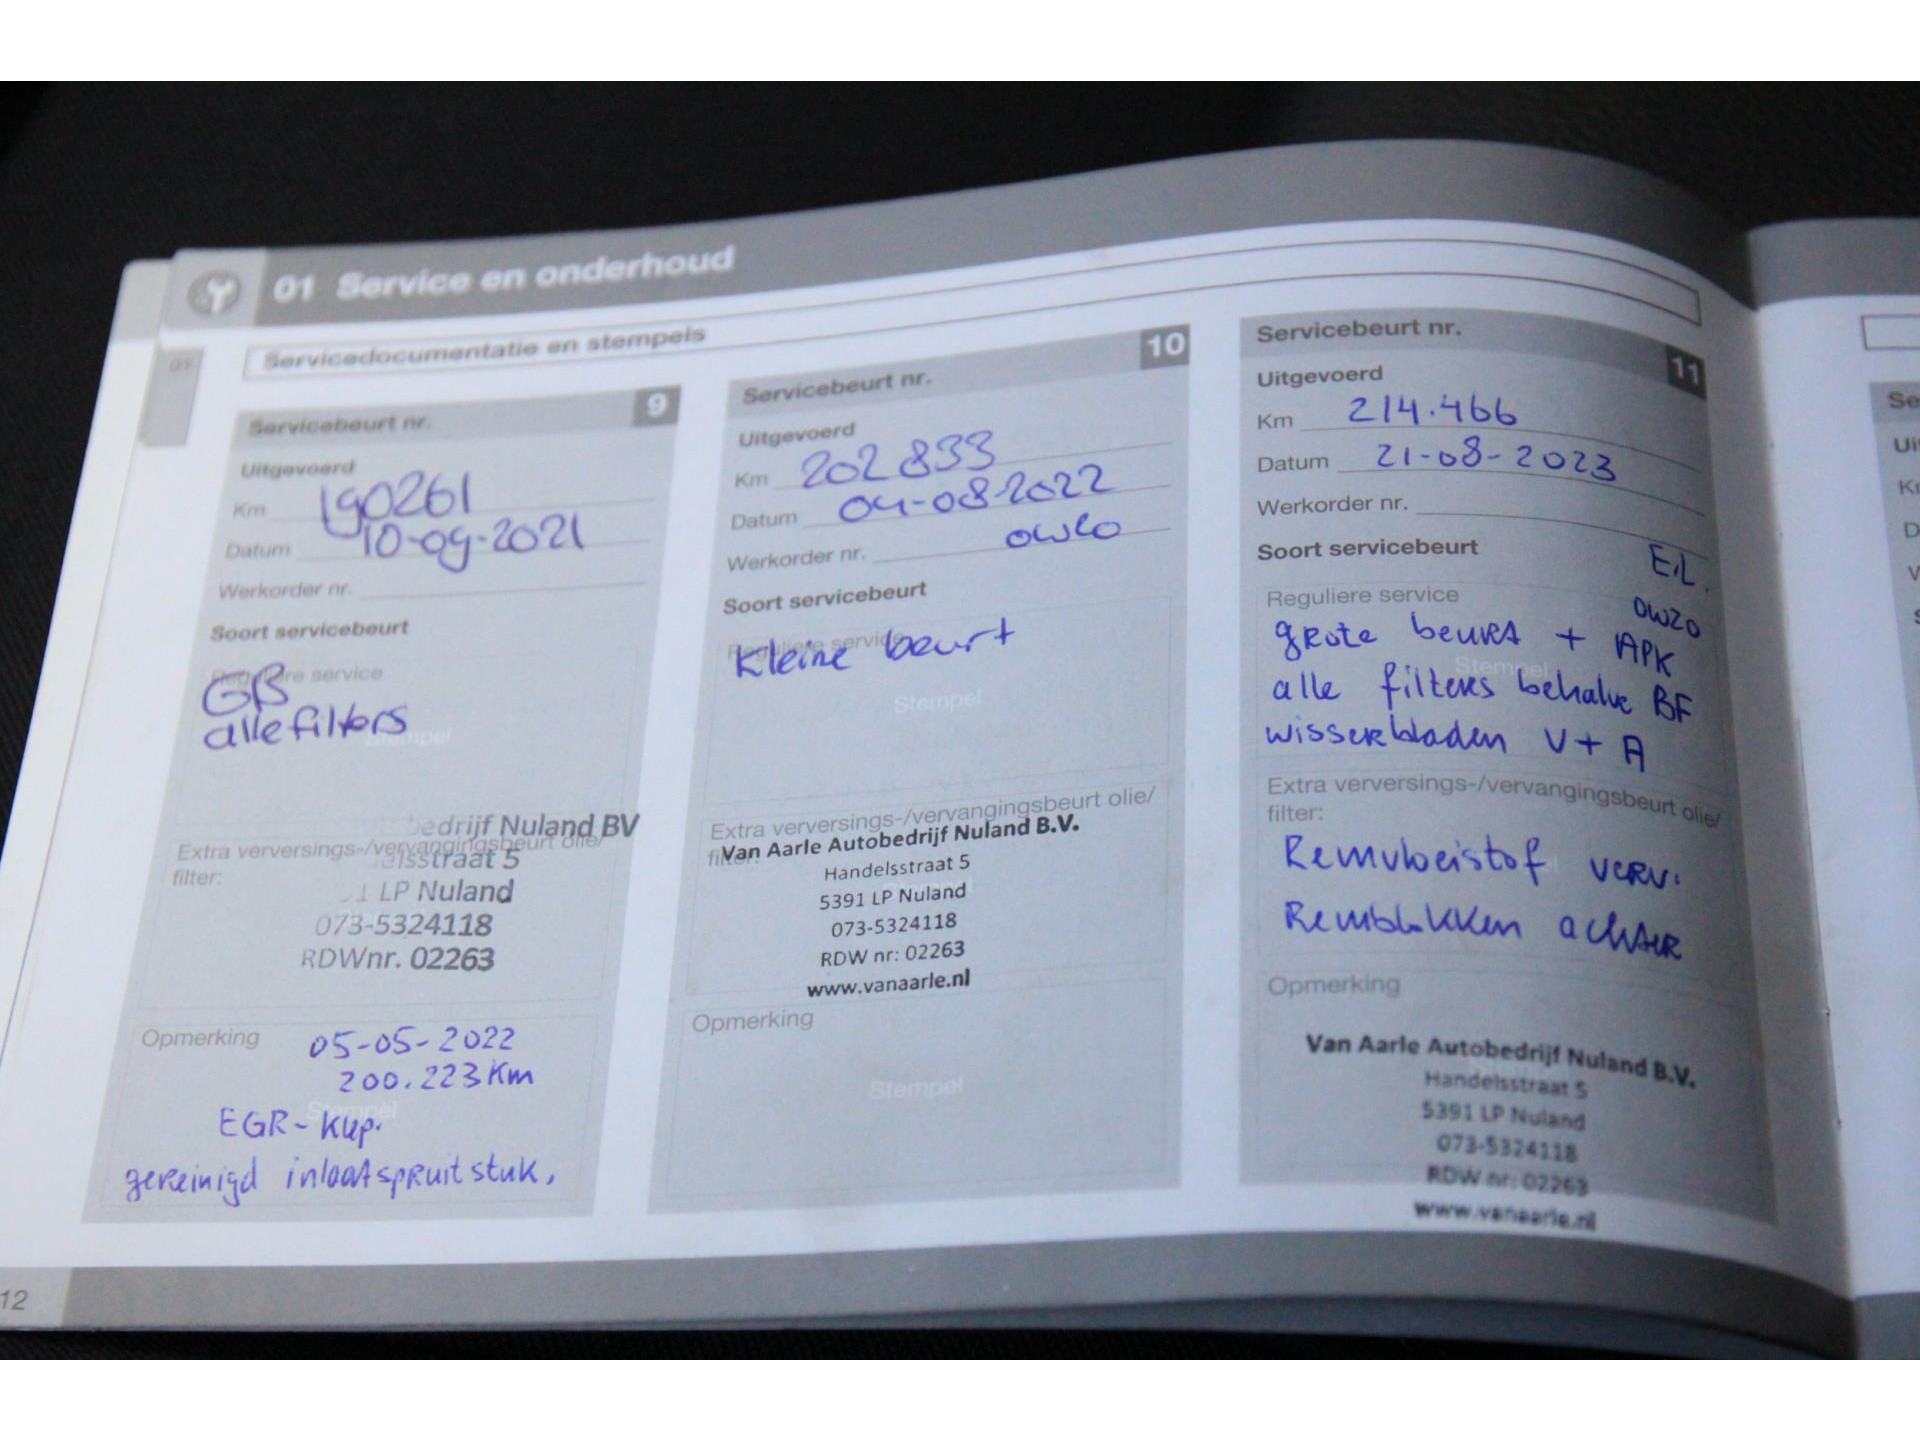 01 Service en onderhoud
01
Servicedocumentatie en stempels
Servicebeurt nr. 9
Uitgevoerd
Km 190261
Datum 10-09-2021
Werkorder nr.
Soort servicebeurt
Reguliere service
GB
alle filters
Stempel
edrijf Nuland BV
Extra verversings-/vervangingsbeurt olie/
filter:
elsstraat 5
1 LP Nuland
073-5324118
RDWnr. 02263
Opmerking
05-05-2022
200.223 Km
Stempel
EGR-Klep.
gereinigd inlaatspruitstuk.
Servicebeurt nr. 10
Uitgevoerd
Km 202833
Datum 04-08-2022
Werkorder nr.
Soort servicebeurt
Reguliere service
Kleine beurt
Stempel
Extra verversings-/vervangingsbeurt olie/
filter:
Van Aarle Autobedrijf Nuland B.V.
Handelsstraat 5
5391 LP Nuland
073-5324118
RDW nr: 02263
www.vanaarle.nl
Opmerking
Stempel
Servicebeurt nr. 11
Uitgevoerd
Km 214.466
Datum 21-08-2023
Werkorder nr.
Soort servicebeurt
E.L.
Reguliere service
OW20
grote beurt + APK
Stempel
alle filters behalve BF
wisserbladen V+A
Extra verversings-/vervangingsbeurt olie/
filter:
Remvloeistof verv.
Remblokken achter
Opmerking
Van Aarle Autobedrijf Nuland B.V.
Handelsstraat 5
5391 LP Nuland
073-5324118
RDW nr: 02263
www.vanaarle.nl
12